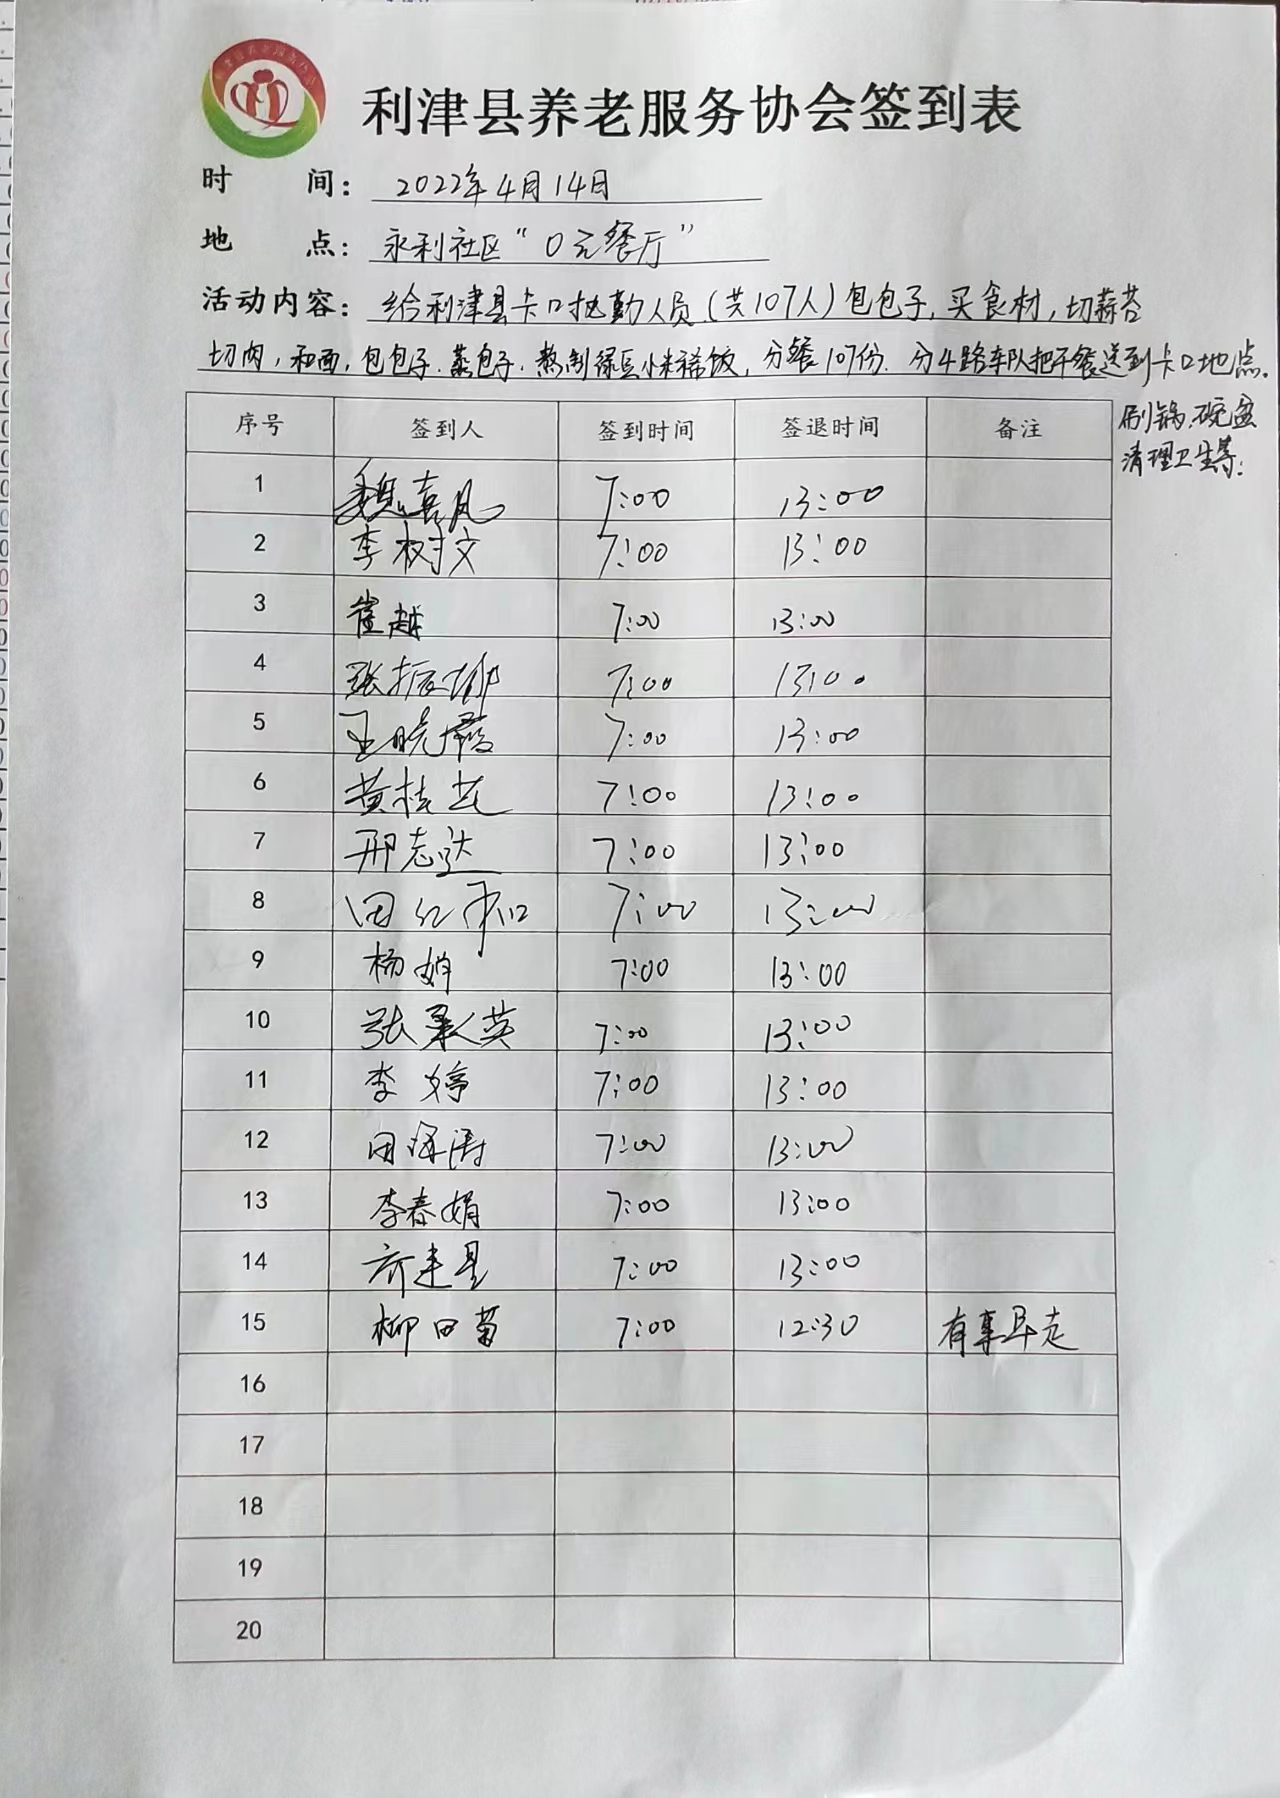 利津县养老服务协会签到表
时 间： 2022年4月14日
地 点： 永利社区“0元餐厅”
活动内容： 给利津县卡口执勤人员（共107人）包包子，买食材，切蒜苔
切肉，和面，包包子．蒸包子．熬制绿豆小米稀饭，分餐107份．分4路车队把午餐送到卡口地点．
刷锅．碗盆
清理卫生等；
序号 签到人 签到时间 签退时间 备注
1 魏喜凤 7:00 13:00
2 李树文 7:00 13:00
3 崔越 7:00 13:00
4 张振 7:00 13:00
5 王晓霞 7:00 13:00
6 黄桂芝 7:00 13:00
7 邢志达 7:00 13:00
8 田红和 7:00 13:00
9 杨娟 7:00 13:00
10 张翠英 7:00 13:00
11 李婷 7:00 13:00
12 田泽涛 7:00 13:00
13 李春娟 7:00 13:00
14 齐建星 7:00 13:00
15 柳田菊 7:00 12:30 有事早走
16
17
18
19
20